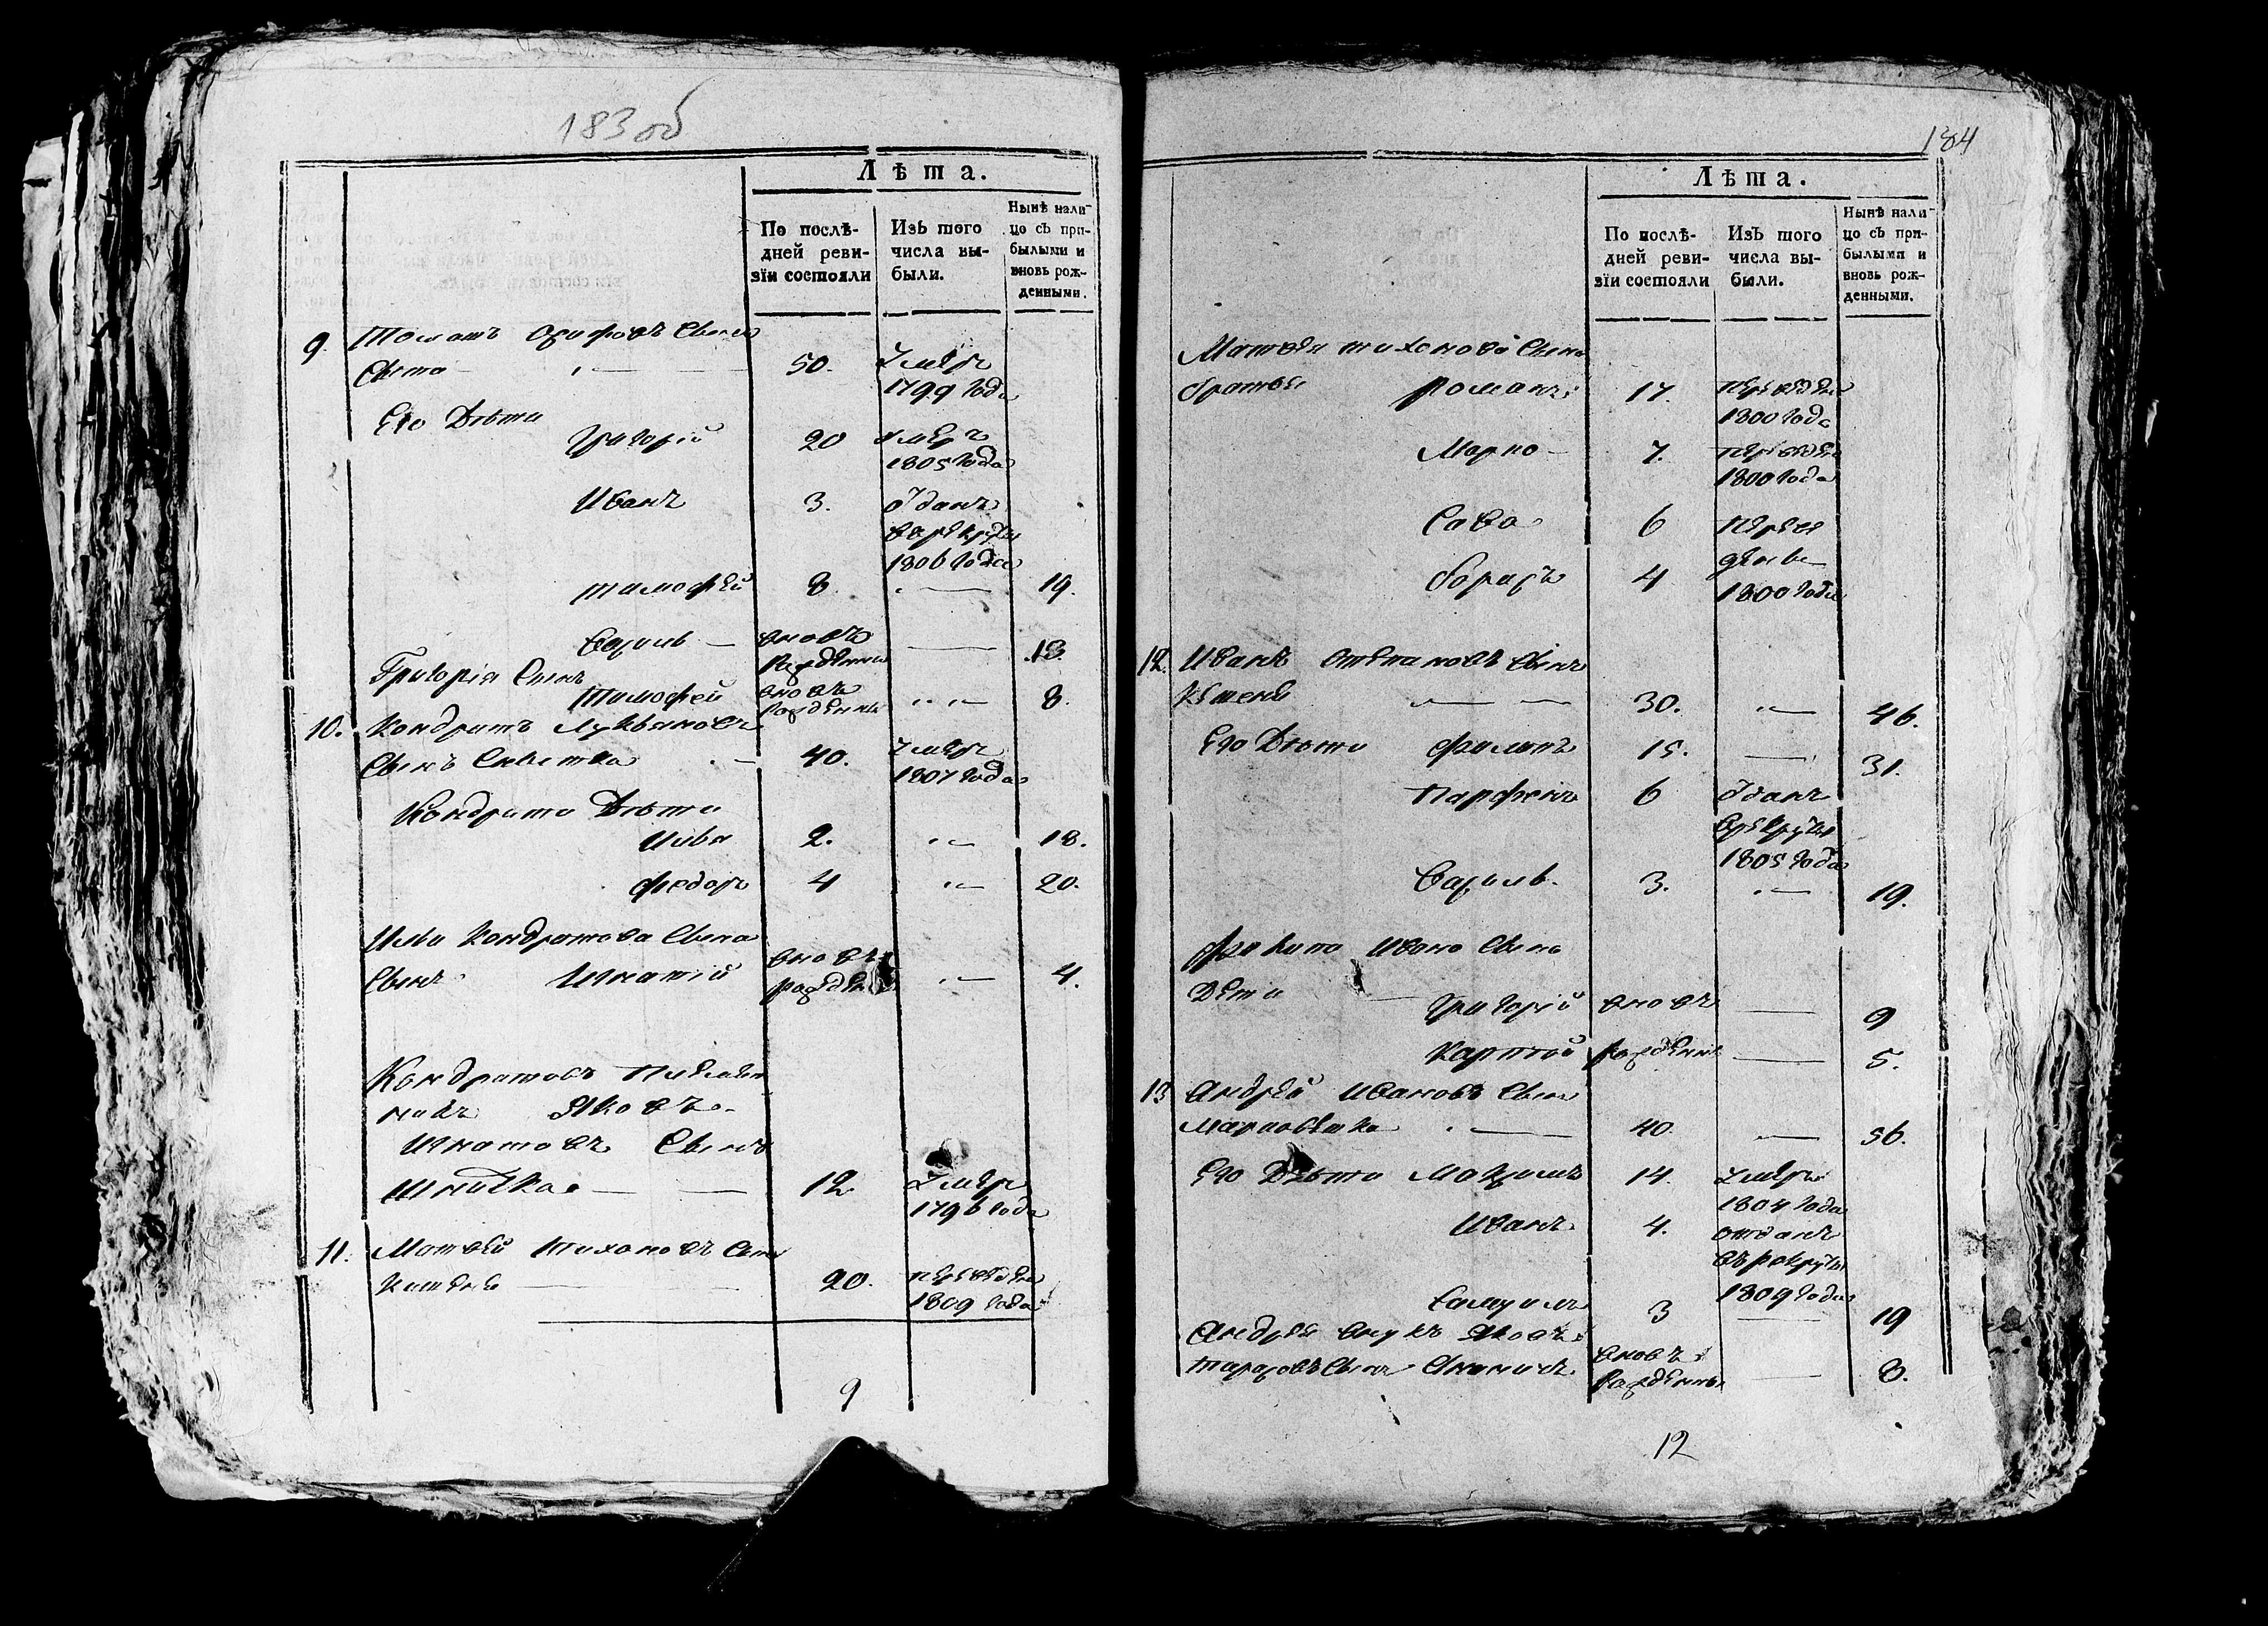 183 об
Лѣта.
По послѣ-
дней реви-
зїи состояли
Изъ того
числа вы-
были.
Нынѣ нали-
цо съ при-
былыми и
вновь рож-
денными.
9. Осиповъ Сынъ
50. умеръ
1799 года
Его Дѣти
Григорій 20 умеръ
1805 года
Иванъ 3. отданъ
врекруты
1806 года
тимофей 8. 19.
Василь вновь
рожденны 13.
Григорія Сынъ
Тимофей вновь
рожденны 8.
10. Кондратъ Лукьяновъ
Сынъ 40. умеръ
1807 года
Кондрата Дѣти
Илья 2. 18.
федоръ 4 20.
Ильи Кондратова Сына
Сынъ Игнатій вновь
рожденны 4.
Кондратовъ Племян
никъ Яковъ
Игнатовъ Сынъ
12. умеръ
1796 года
11. Матвей тихоновъ Сынъ
20. переведенъ
1809 года
9
184
Лѣта.
По послѣ-
дней реви-
зїи состояли
Изъ того
числа вы-
были.
Нынѣ нали-
цо съ при-
былыми и
вновь рож-
денными.
Матвея тихонова Сына
братья Романъ 17. переведенъ
1800 года
Марко 7. переведенъ
1800 года
Сава 6 переве
дены
4 1800 года
12. Иванъ Степановъ Сынъ
30. 46.
Его Дѣти филипъ 15. 31.
Парфенъ 6 отданъ
врекруты
1805 года
Василь. 3. 19.
филипа Ивана Сына
Дети Григорій вновь 9
Карпъ рожденны 5.
13 Андрей Ивановъ Сынъ
40. 56.
Его Дѣти Максимъ 14. умеръ
1804 года
Иванъ 4. отданъ
въ рекруты
1809 года
Самуилъ 3 19
Андрея внукъ Яковъ
тарасовъ Сынъ вновь
рожденны 8.
12